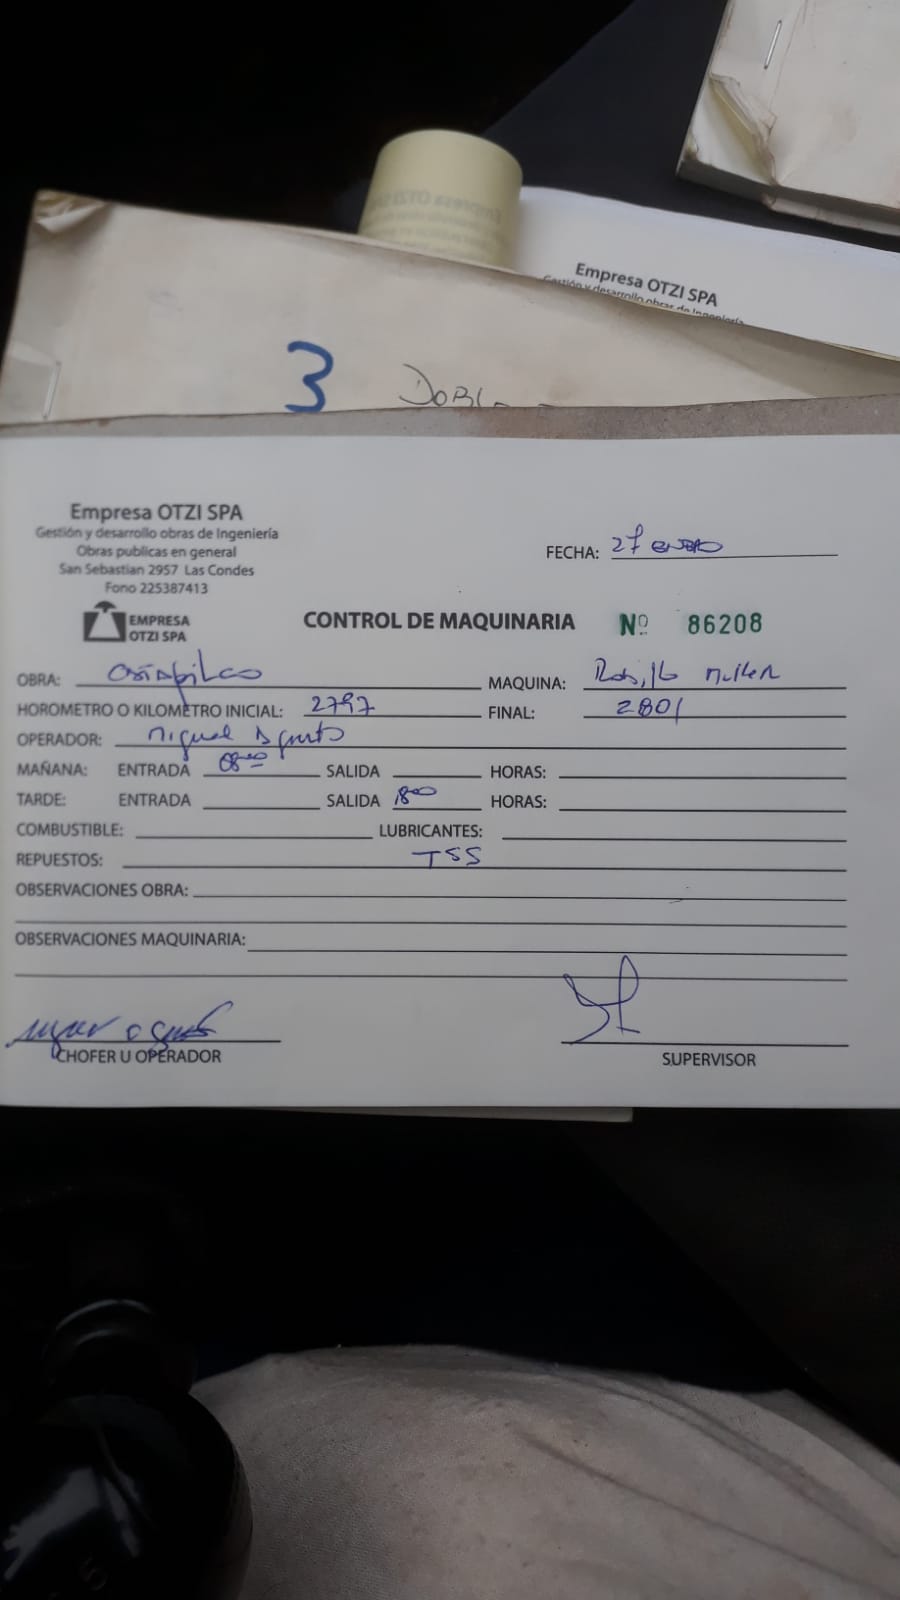 Empresa OTZI SPA
Gestión y desarrollo obras de Ingeniería
3
DOBLE
Empresa OTZI SPA
Gestión y desarrollo obras de Ingeniería
Obras publicas en general
San Sebastian 2957 Las Condes
Fono 225387413
FECHA: 27 enero
EMPRESA
OTZI SPA
CONTROL DE MAQUINARIA Nº 86208
OBRA:
MAQUINA: Rodillo Muller
HOROMETRO O KILOMETRO INICIAL: 2797 FINAL: 2801
OPERADOR: Miguel
MAÑANA: ENTRADA 08:00 SALIDA HORAS:
TARDE: ENTRADA SALIDA 18:00 HORAS:
COMBUSTIBLE: LUBRICANTES:
REPUESTOS: TSS
OBSERVACIONES OBRA:
OBSERVACIONES MAQUINARIA:
CHOFER U OPERADOR
SUPERVISOR